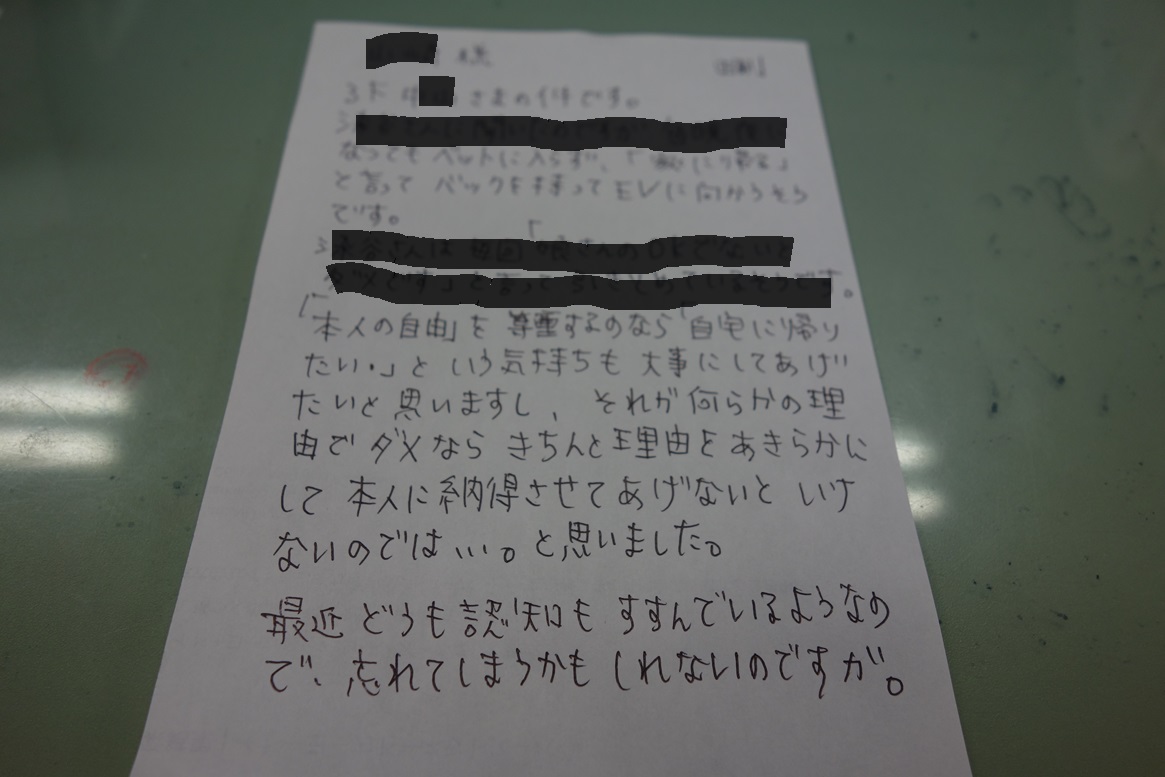 様
3F さまの件です。
なってもベットに入らず、「
と言って バックを持ってEVに向かうそう
です。
「本人の自由」を 尊重するのなら「自宅に帰り
たい.」と いう気持ちも 大事にしてあげ
たいと思いますし、 それが何らかの理
由で ダメなら きちんと理由をあきらかに
して 本人に納得させてあげないと いけ
ないのでは…。と思いました。
最近 どうも 認知も すすんでいるようなの
で、 忘れてしまうかも しれないのですが。